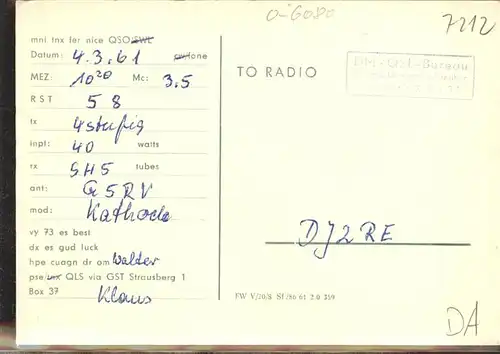 O-6080
7212
mni tnx fer nice QSO/SWL
Datum: 4.3.61 cw/fone
MEZ: 10²⁰ Mc: 3,5
RST 58
tx 4stufig
inpt: 40 watts
rx SH5 tubes
ant: G5RV
mod: Kathode
vy 73 es best
dx es gud luck
hpe cuagn dr om Walter
pse/tnx QLS via GST Strausberg 1
Box 37 Klaus
DM-QSL-Bureau
TO RADIO
DJ2RE
FW V/10/8 Sf/So 61 2,0 359
DA